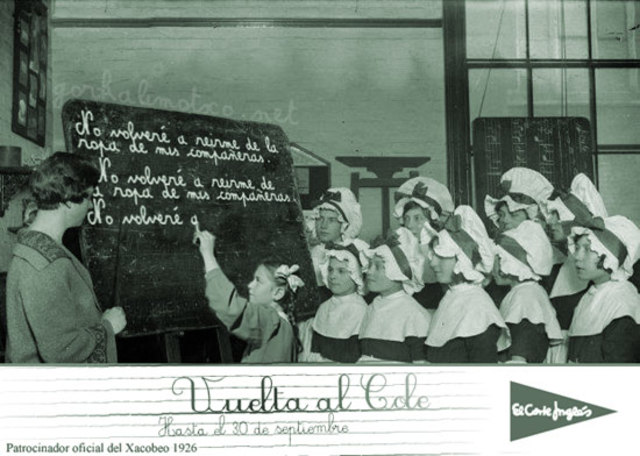 gorkalimotxo.net
No volveré a reirme de la
ropa de mis compañeras.
No volveré a reirme de
a ropa de mis compañeras.
No volveré
Vuelta al Cole
Hasta el 30 de septiembre
El Corte Inglés
Patrocinador oficial del Xacobeo 1926